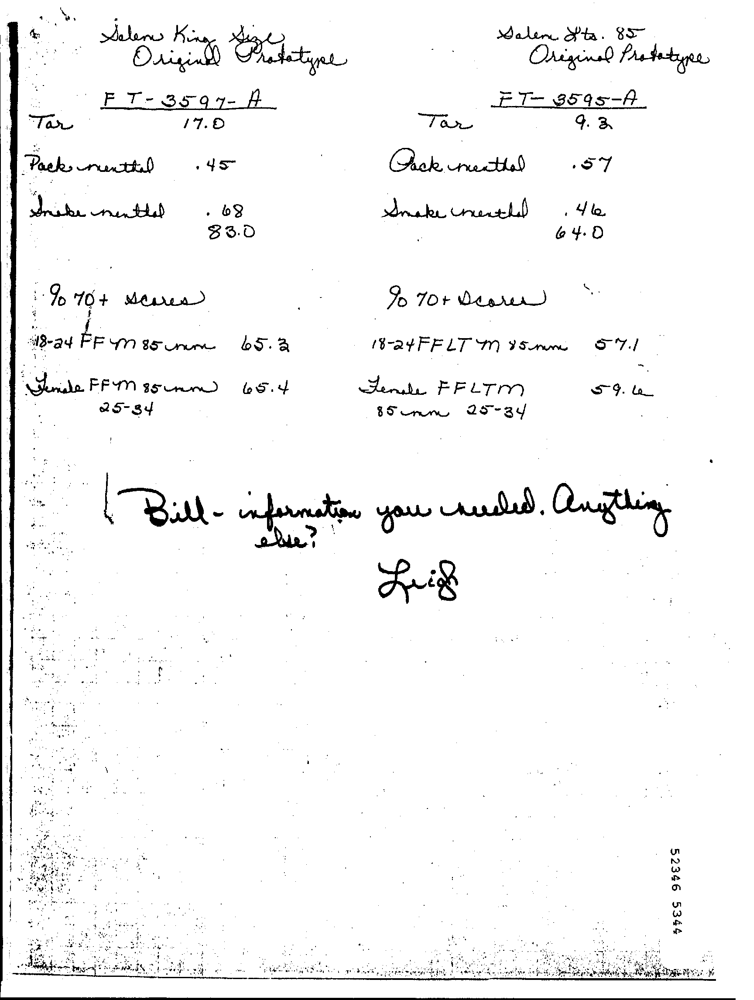 Salem King Size
Original Prototype
FT-3597-A
Tar 17.0
Pack menthol .45
Smoke menthol .68
83.0
% 70+ scores
18-24 FFM 85 mm 65.3
Female FFM 85 mm 65.4
25-34
Salem Lts. 85
Original Prototype
FT-3595-A
Tar 9.3
Pack menthol .57
Smoke menthol .46
64.0
% 70+ Scores
18-24 FFLTM 85 mm 57.1
Female FFLTM 59.6
85 mm 25-34
Bill - information you needed. Anything
else?
Leigh
52346 5344